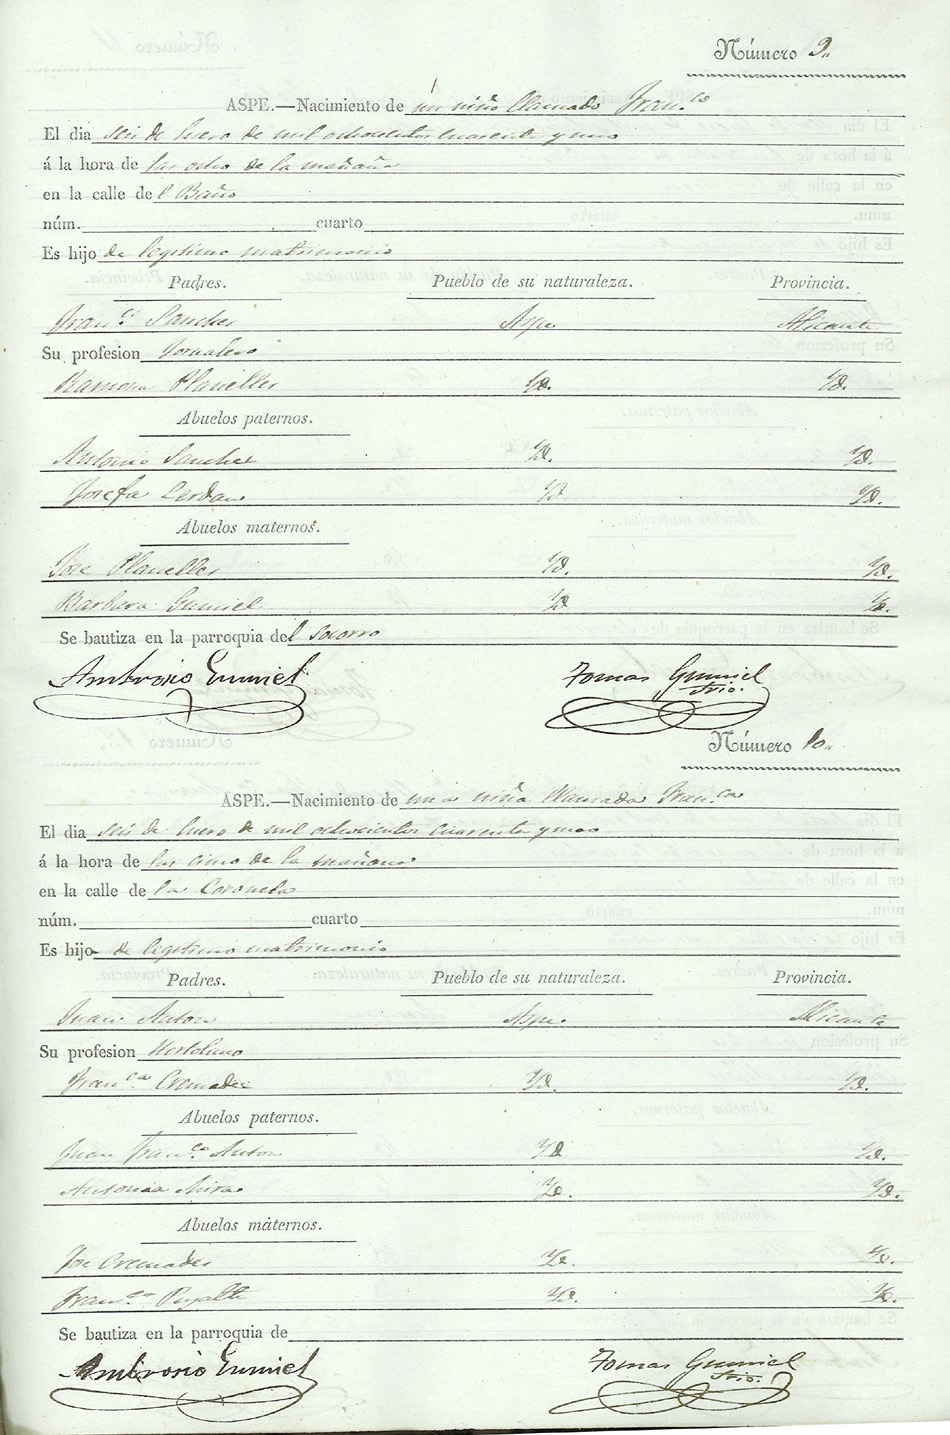 Número 9.
ASPE.—Nacimiento de un niño llamado Fran.co
El dia seis de Enero de mil ochocientos cuarenta y uno
á la hora de las ocho de la mañana
en la calle del Baño
núm. cuarto
Es hijo de legitimo matrimonio
Padres. Pueblo de su naturaleza. Provincia.
Fran.co Sanchez Aspe Alicante
Su profesion Jornalero
Ramona Planelles Yd. Yd.
Abuelos paternos.
Antonio Sanchez Yd. Yd.
Josefa Cerdan Yd Yd.
Abuelos maternos.
Jose Planelles Yd. Yd.
Barbara Gumiel Yd Yd.
Se bautiza en la parroquia del Socorro
Ambrosio Gumiel Tomas Gumiel
Srio.
Número 10.
ASPE.—Nacimiento de una niña llamada Fran.ca
El dia seis de Enero de mil ochocientos cuarenta y uno
á la hora de las cinco de la mañana
en la calle de la Coroneta
núm. cuarto
Es hijo de legitimo matrimonio
Padres. Pueblo de su naturaleza. Provincia.
Juan Anton Aspe Alicante
Su profesion Hortelano
Fran.ca Cremades Yd. Yd.
Abuelos paternos.
Juan Fran.co Anton Yd Yd.
Antonia Mira Yd. Yd.
Abuelos maternos.
Jose Cremades Yd. Yd.
Fran.ca Puyalte Yd. Yd.
Se bautiza en la parroquia de
Ambrosio Gumiel Tomas Gumiel
Srio.